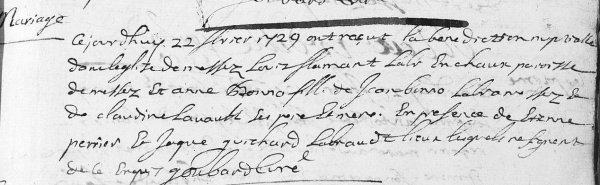 Mariage
Cejourdhuy 22 febvrier 1729 ont reçut la benediction nuptialle
dans leglise de Louis flamant Labr En chaux paroisse
de et anne bonna fille de Jean bonno Labr
de claudine Lavault ses pere Et mere. En presence de Etienne
perrier Et Jaque guichard Labr dud lieux lesquels ne signent
de ce Enquis goubard Curé